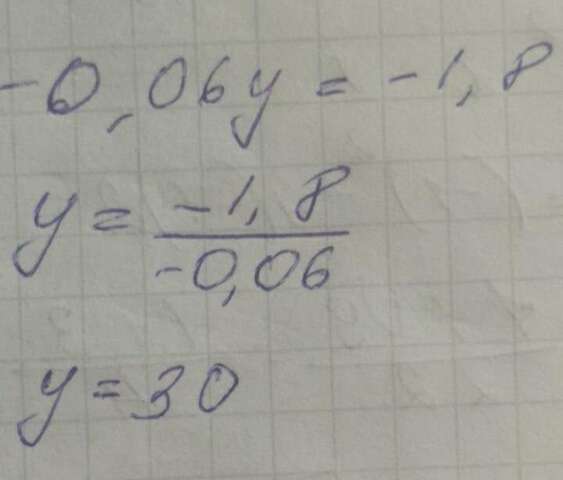 -0,06y = -1,8
y = -1,8 / -0,06
y = 30